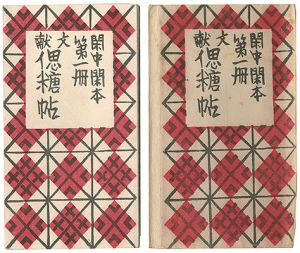 閑中閑本
第冊
文献
偲糖帖
閑中閑本
第冊
文献
偲糖帖